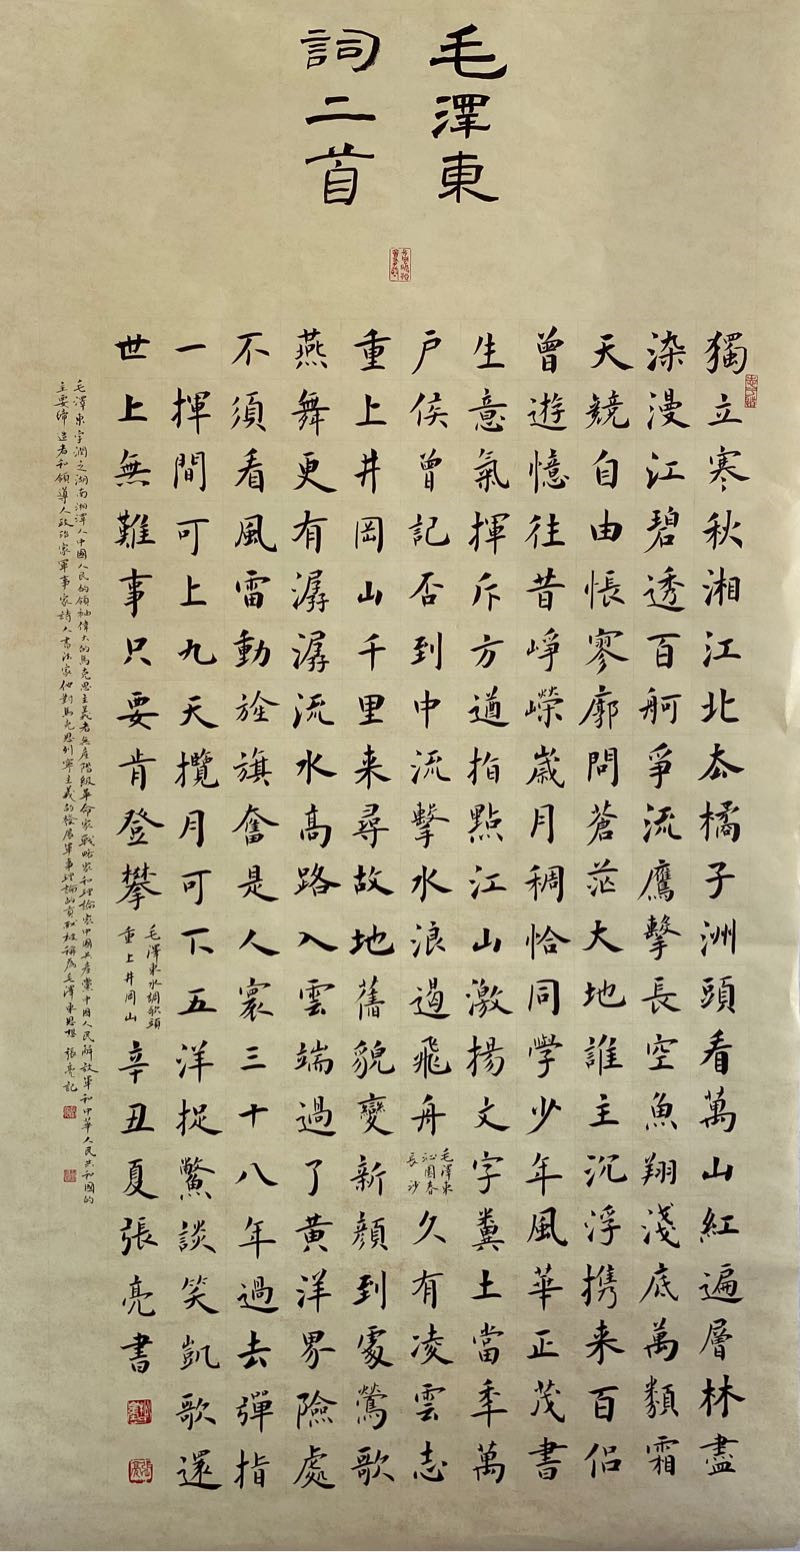 毛澤東
詞二首
獨立寒秋湘江北去橘子洲頭看萬山紅遍層林盡
染漫江碧透百舸爭流鷹擊長空魚翔淺底萬類霜
天競自由悵寥廓問蒼茫大地誰主沉浮携来百侶
曾遊憶往昔崢嶸歲月稠恰同學少年風華正茂書
生意氣揮斥方遒指點江山激揚文字糞土當年萬
戶侯曾記否到中流擊水浪遏飛舟
毛澤東
沁園春
長沙
久有凌雲志
重上井岡山千里来尋故地舊貌變新顏到處鶯歌
燕舞更有潺潺流水高路入雲端過了黃洋界險處
不須看風雷動旌旗奮是人寰三十八年過去彈指
一揮間可上九天攬月可下五洋捉鱉談笑凱歌還
世上無難事只要肯登攀
毛澤東水調歌頭
重上井岡山
辛丑夏張亮書
毛澤東字潤之湖南湘潭人中國人民的領袖偉大的馬克思主義者無產階級革命家戰略家和理論家中國共產黨中國人民解放軍和中華人民共和國的
主要締造者和領導人政治家軍事家詩人書法家他對馬克思列寧主義的發展軍事理論的貢獻被稱為毛澤東思想 張亮記